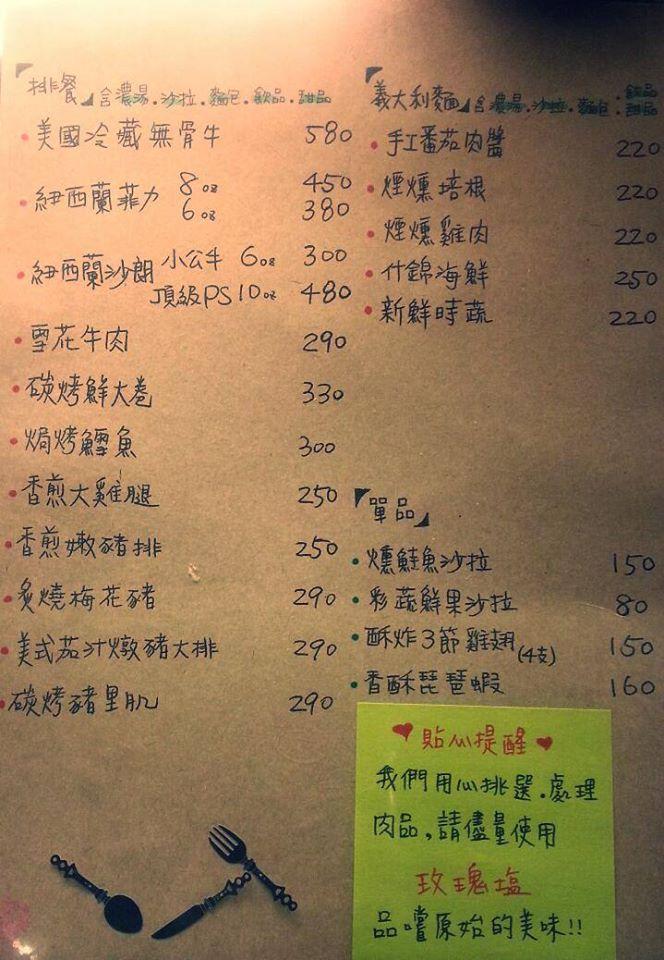 「排餐」含濃湯.沙拉.麵包.飲品.甜品
美國冷藏無骨牛 580
紐西蘭菲力 8oz 450
6oz 380
紐西蘭沙朗 小公牛 6oz 300
頂級PS 10oz 480
雪花牛肉 290
碳烤鮮大卷 330
焗烤鱈魚 300
香煎大雞腿 250
香煎嫩豬排 250
炙燒梅花豬 290
美式茄汁燉豬大排 290
碳烤豬里肌 290
「義大利麵」含濃湯.沙拉.麵包.飲品.甜品
手工番茄肉醬 220
煙燻培根 220
煙燻雞肉 220
什錦海鮮 250
新鮮時蔬 220
「單品」
燻鮭魚沙拉 150
彩蔬鮮果沙拉 80
酥炸3節雞翅(4支) 150
香酥琵琶蝦 160
貼心提醒
我們用心挑選.處理
肉品,請儘量使用
玫瑰塩
品嚐原始的美味!!